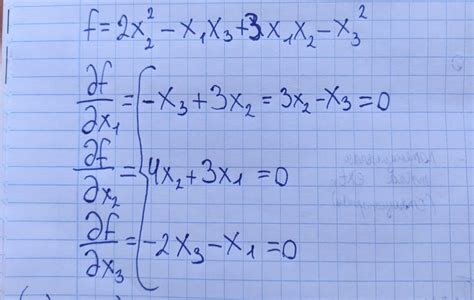 f = 2x₂² - x₁x₃ + 3x₁x₂ - x₃²
∂f/∂x₁ = { -x₃ + 3x₂ = 3x₂ - x₃ = 0
∂f/∂x₂ = { 4x₂ + 3x₁ = 0
∂f/∂x₃ = { -2x₃ - x₁ = 0